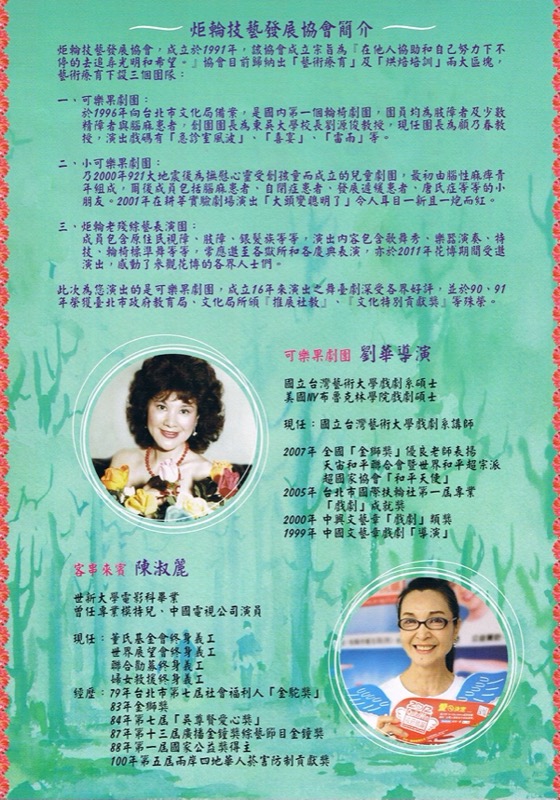 炬輪技藝發展協會簡介
炬輪技藝發展協會，成立於1991年，該協會成立宗旨為『在他人協助和自己努力下不
停的去追尋光明和希望。』協會目前歸納出「藝術療育」及「烘焙培訓」兩大區塊，
藝術療育下設三個團隊：
一、可樂果劇團：
於1996年向台北市文化局備案，是國內第一個輪椅劇團，團員均為肢障者及少數
精障者與腦麻患者，創團團長為東吳大學校長劉源俊教授，現任團長為顧乃春教
授，演出戲碼有「急診室風波」、「喜宴」、「雷雨」等。
二、小可樂果劇團：
乃2000年921大地震後為撫慰心靈受創孩童而成立的兒童劇團，最初由腦性麻痺青
年組成，爾後成員包括腦麻患者、自閉症患者、發展遲緩患者、唐氏症等等的小
朋友。2001年在耕莘實驗劇場演出「大頭變聰明了」令人耳目一新且一炮而紅。
三、炬輪老殘綜藝表演團：
成員包含原住民視障、肢障、銀髮族等等，演出內容包含歌舞秀、樂器演奏、特
技、輪椅標準舞等等，常應邀至各獄所和各慶典表演，亦於2011年花博期間受邀
演出，感動了來觀花博的各界人士們。
此次為您演出的是可樂果劇團，成立16年來演出之舞臺劇深受各界好評，並於90、91
年榮獲臺北市政府教育局、文化局所頒『推展社教』、『文化特別貢獻獎』等殊榮。
可樂果劇團 劉華導演
國立台灣藝術大學戲劇系碩士
美國NY布魯克林學院戲劇碩士
現任：國立台灣藝術大學戲劇系講師
2007年 全國「金獅獎」優良老師表揚
天宙和平聯合會暨世界和平超宗派
超國家協會「和平天使」
2005年 台北市國際扶輪社第一屆專業
「戲劇」成就獎
2000年 中興文藝章「戲劇」類獎
1999年 中國文藝章戲劇「導演」
客串來賓 陳淑麗
世新大學電影科畢業
曾任專業模特兒、中國電視公司演員
現任：董氏基金會終身義工
世界展望會終身義工
聯合勸募終身義工
婦女救援終身義工
經歷：79年台北市第七屆社會福利人「金駝獎」
83年金獅獎
84年第七屆「吳尊賢愛心獎」
87年第十三屆廣播金鐘獎綜藝節目金鐘獎
88年第一屆國家公益獎得主
100年第五屆兩岸四地華人菸害防制貢獻獎